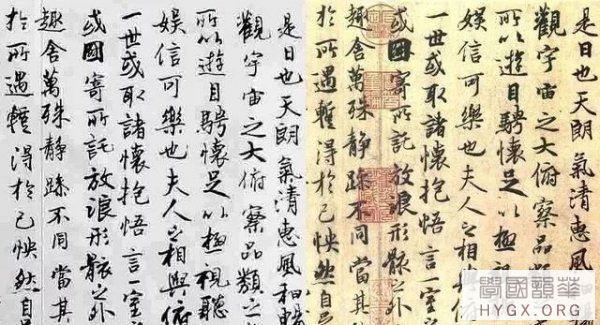 是日也天朗氣清惠風
觀宇宙之大俯察品類
所以遊目騁懷足以極視
娛信可樂也夫人之相與
一世或取諸懷抱悟言一室
或因寄所託放浪形骸之外
趣舍萬殊静躁不同當其
於所遇暫得於己怏然自
是日也天朗氣清惠風和暢
觀宇宙之大俯察品類之
所以遊目騁懷足以極視聽
娛信可樂也夫人之相與俯
一世或取諸懷抱悟言一室
或因寄所託放浪形骸之外
趣舍萬殊静躁不同當其
於所遇暫得於己怏然自
華韻國學
HYGX.ORG